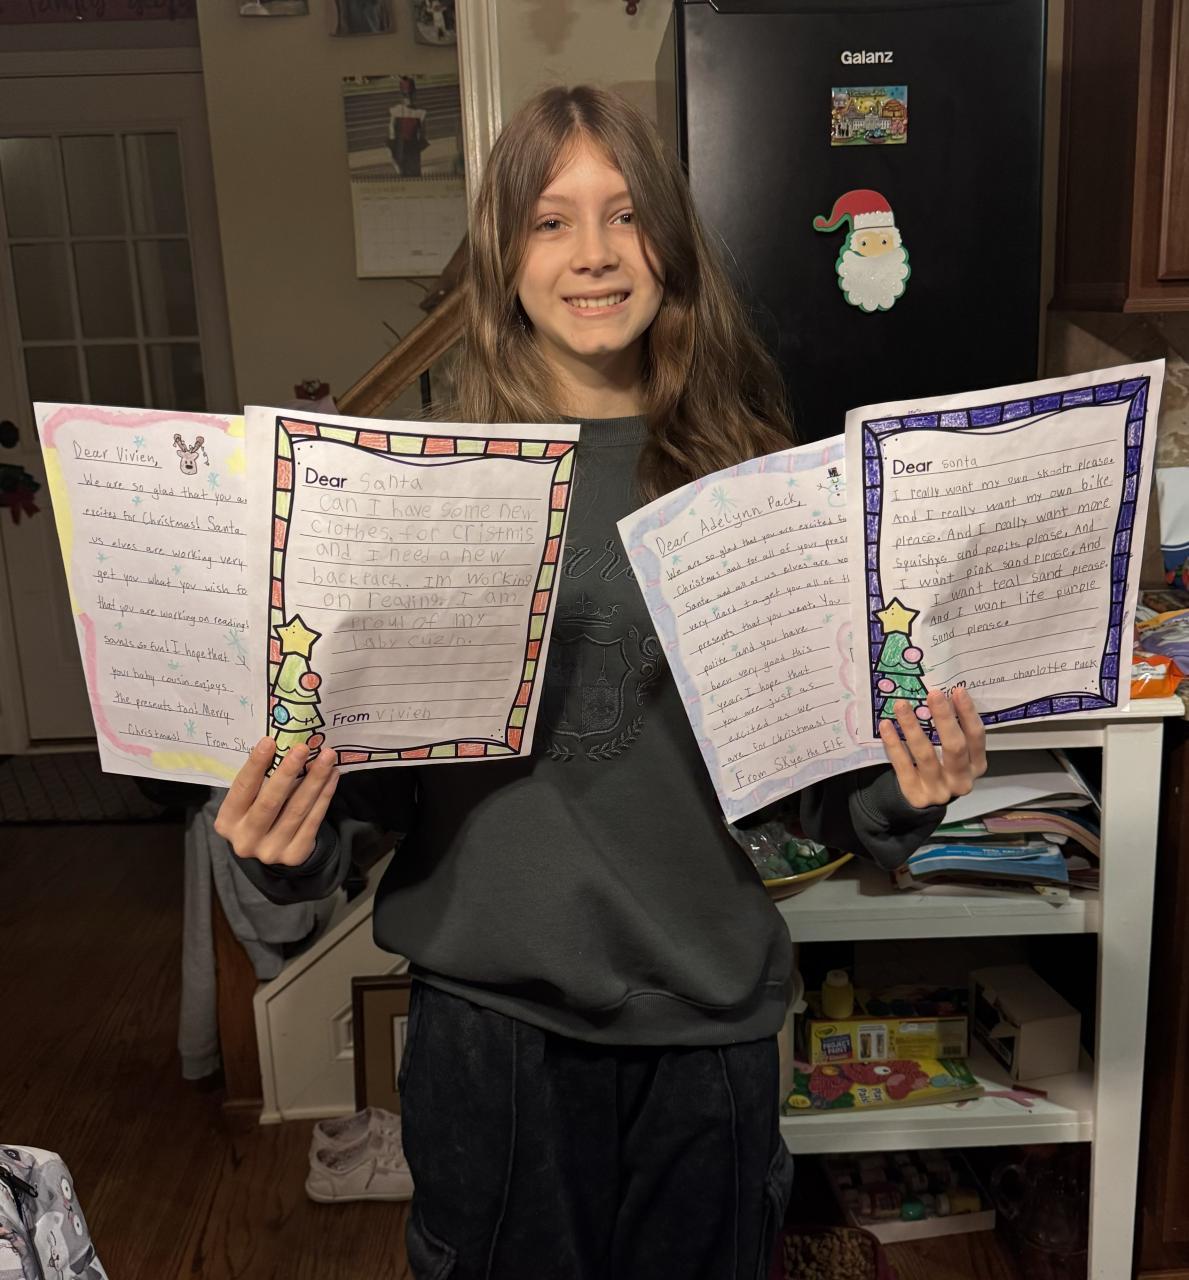 Galanz
DECEMBER
Dear Vivien,
We are so glad that you a
excited for Christmas! Santa
us elves are working very
get you what you wish fo
that you are working on reading!
sounds so fun! I hope that y
your baby cousin enjoys
the presents too! Merry
Christmas! From Sky
Dear Santa
can I have some new
clothes. for Cristmis
and I need a new
backpack. Im working
on reading. I am
proud of my
baby cuzin.
From Vivien
Dear Adelynn Pack,
We are so glad that you are excited fo
Christmas and for all of your prese
Santa and all of us elves are wo
very hard to get you all of th
presents that you want. You
polite and you have
been very good this
year. I hope that
you are just as
excited as we
are for Christmas!
From Skye the Elf
Dear santa
I really want my own skootr please.
And I really want my own bike
please. And I really want more
squishys and popits please. And
I want pink sand please. And
I want teal sand please.
And I want lite purple
sand please.
From Adelynn charlotte Pack
Crayola
PROJECT
PAINT